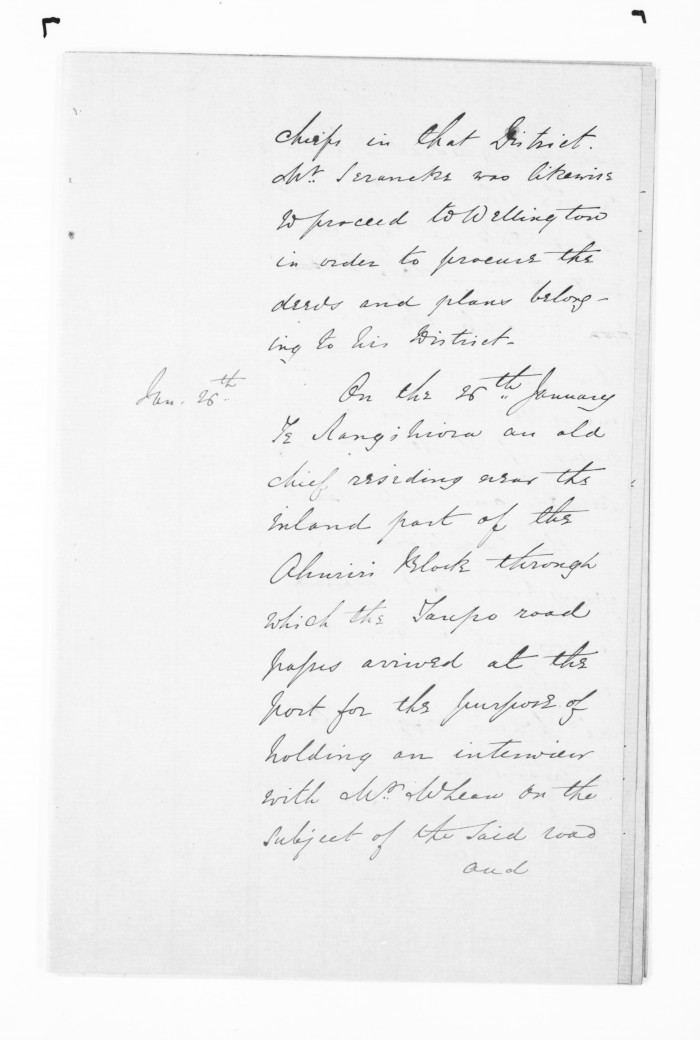 chiefs in that District.
Mr. Searancke was likewise
to proceed to Wellington
in order to procure the
deeds and plans belong-
ing to his District.
Jan. 26th.
On the 26th. January
Te Rangihiroa an old
chief residing near the
inland part of the
Ahuriri Block through
which the Taupo road
passes arrived at the
Port for the purpose of
holding an interview
with Mr.
on the
subject of the said road
and